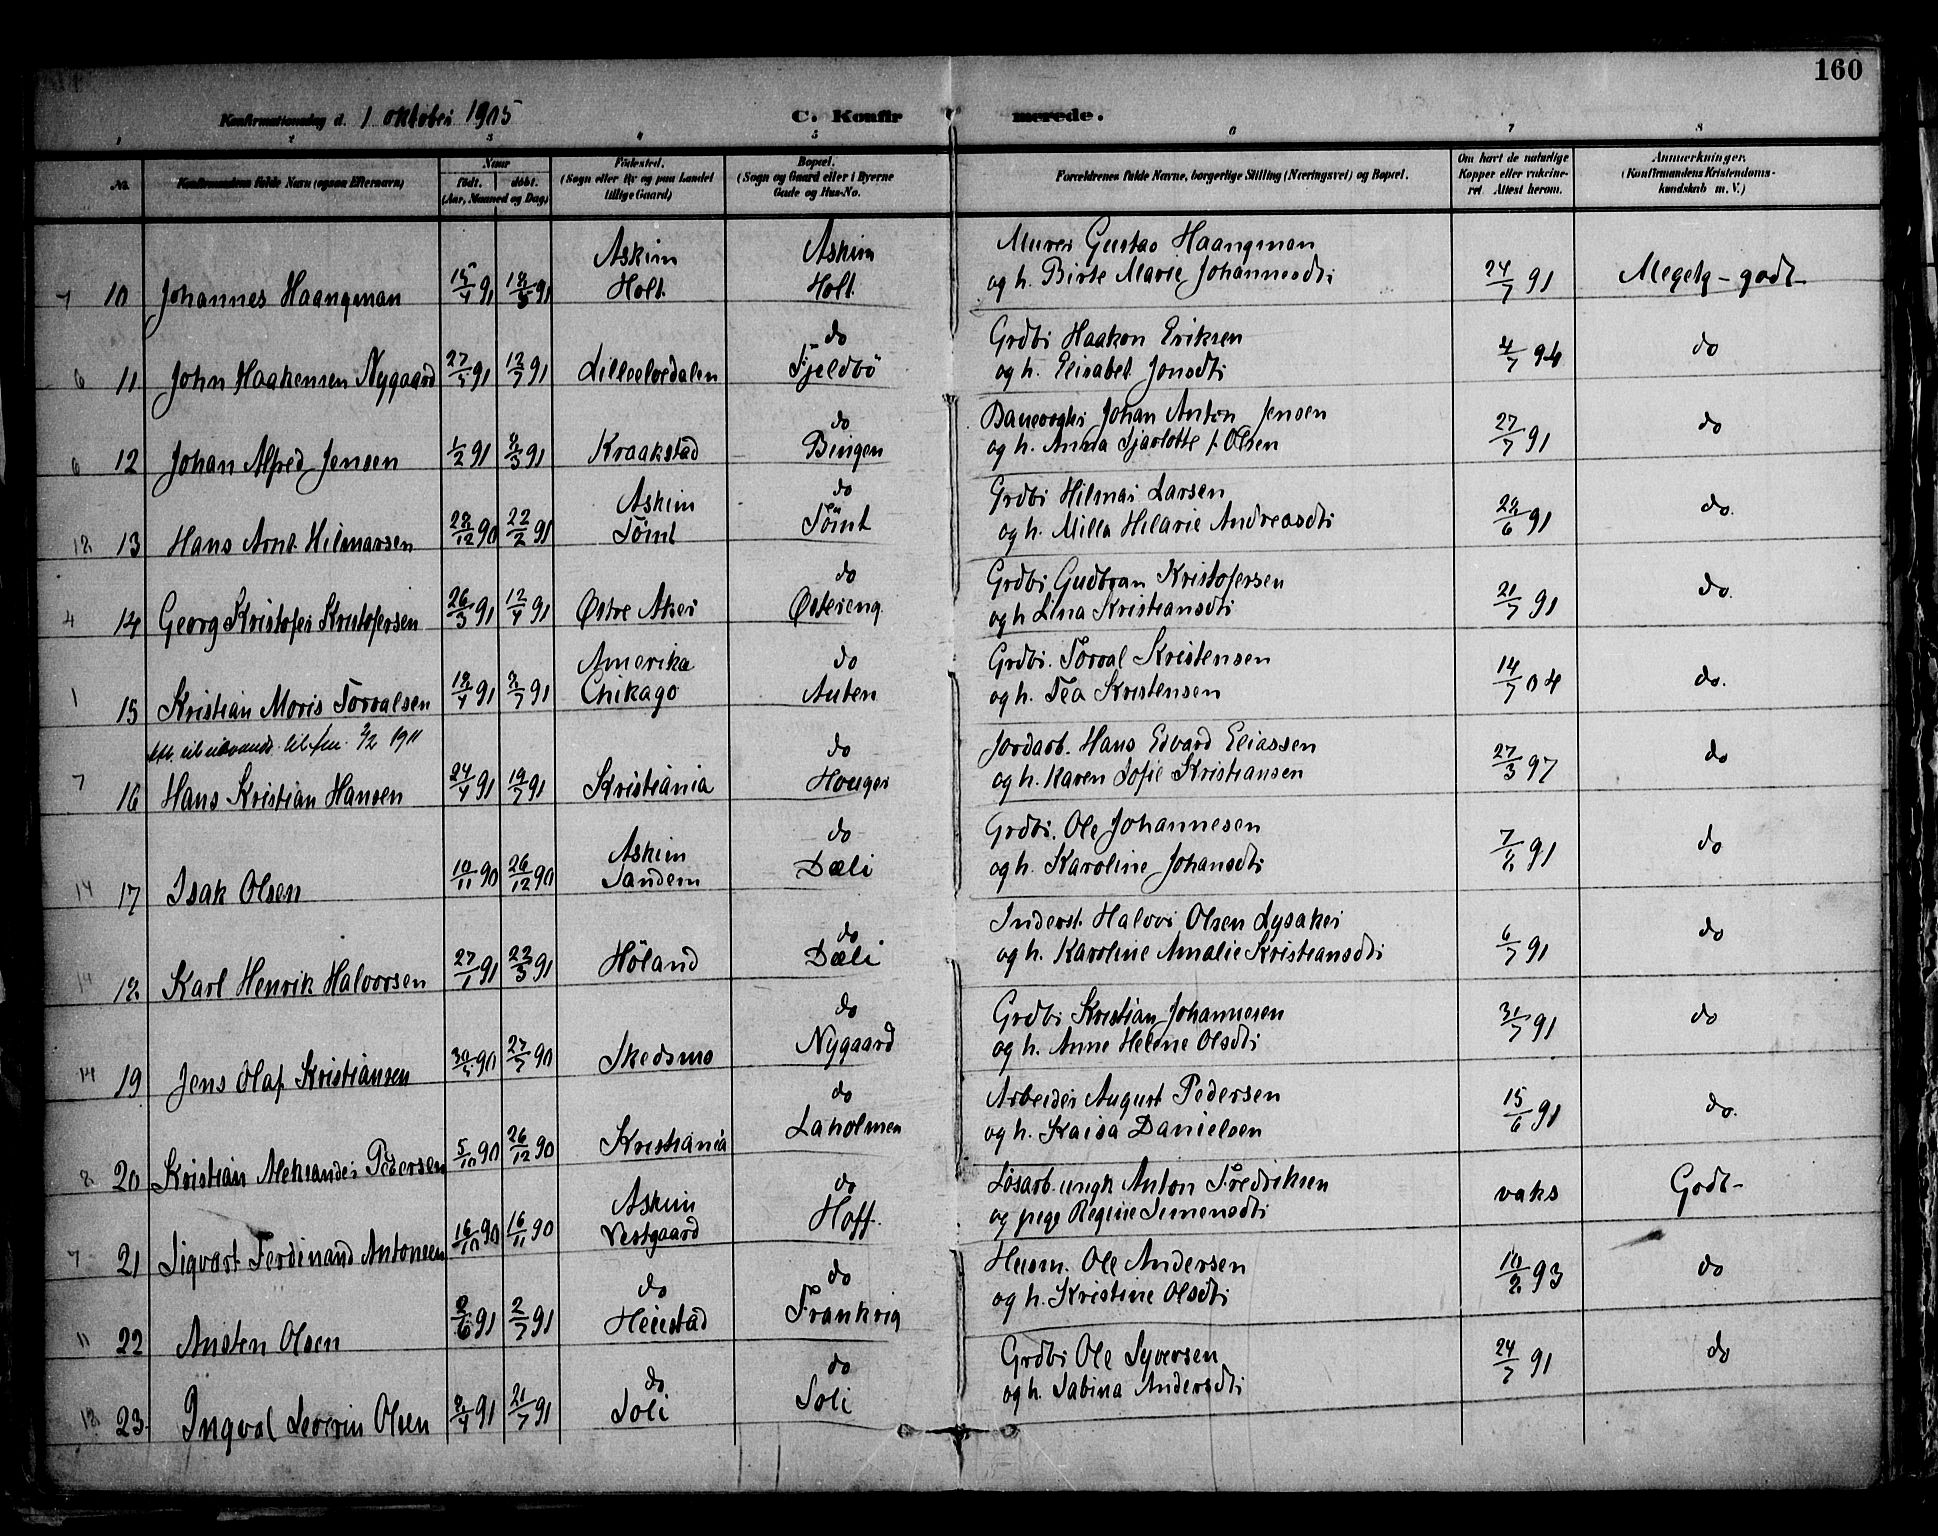 160
Konfirmationsdag d. 1 oktober 1905 C. Konfir merede.
1 2 3 4 5 6 7 8
No. Konfirmandens fulde Navn (ogsaa Efternavn) Naar født. døbt. (Aar, Maaned og Dag) Fødested. (Sogn eller By og paa Landet tillige Gaard) Bopæl. (Sogn og Gaard eller i Byerne Gade og Hus-No. Forældrenes fulde Navne, borgerlige Stilling (Næringsvei) og Bopæl. Om havt de naturlige Kopper eller vakcineret. Attest herom. Anmerkninger. (Konfirmandens Kristendomskundskab m. V.)
Askim Askim Murer Gustav Haangman
7 10 Johannes Haangman 15/4 91 18/5 91 Holt Holt og h. Birte Marie Johannesdtr 24/7 91 Megetg - godt -
do Grdbr Haakon Eriksen
6 11 John Haakensen Nygaard 27/5 91 12/7 91 Lilleelvedalen Fjeldbö og h. Elisabet Jonsdtr 4/7 94 do
do Banevogter Johan Anton Jensen
6 12 Johan Alfred Jensen 1/2 91 8/3 91 Kraakstad Bingen og h. Anna Sjarlotte f. Olsen 27/7 91 do
Askim do Grdbr Hilmar Larsen
12 13 Hans Arnt Hilmarsen 28/12 90 22/2 91 Tömt Tömt og h. Milla Hilarie Andreasdtr 28/6 91 do.
do Grdbr Gudbran Kristofersen
4 14 Georg Kristofer Kristofersen 26/3 91 12/4 91 Østre Aker Østereng og h Lina Kristiansdtr 21/7 91 do.
Amerika do Grdbr. Torval Kristensen
1 15 Kristian Moris Torvalsen 18/4 91 3/7 91 Chikago Auten og h. Tea Kristensen 14/7 04 do.
1911
do Jordarb. Hans Edvard Eliassen
7 16 Hans Kristian Hansen 24/4 91 19/7 91 Kristiania Houger og h. Karen Sofie Kristiansen 27/3 97 do
Askim do Grdbr. Ole Johannesen
14 17 Isak Olsen 10/11 90 26/12 90 Sandem Dæli og h. Karoline Johansdtr 7/8 91 do
do Inderst. Halvor Olsen Lysaker
14 18 Karl Henrik Halvorsen 27/1 91 22/3 91 Höland Dæli og h. Karoline Amalie Kristiansdtr 6/7 91 do
do Grdbr Kristian Johannesen
14 19 Jens Olaf Kristiansen 30/5 90 27/7 90 Skedsmo Nygaard og h. Anne Helene Olsdtr 31/7 91 do
do Arbeider August Pedersen
8 20 Kristian Aleksander Pedersen 5/10 90 26/12 90 Kristiania Laholmen og h. Kaisa Danielsen 15/6 91 do.
Askim do Løsarb. ungk Anton Fredriksen
7 21 Sigvart Ferdinand Antonsen 16/10 90 16/11 90 Vestgaard Hoff. og pige Regine Simensdtr vaks Godt -
do do Husm. Ole Andersen
11 22 Austen Olsen 8/6 91 2/7 91 Heiestad Frankrig og h. Kristine Olsdtr 10/2 93 do
do do Grdbr Ole Syversen
12 23. Ingval Severin Olsen 8/4 91 21/7 91 Soli Soli og h. Sabina Andersdtr 24/7 91 do